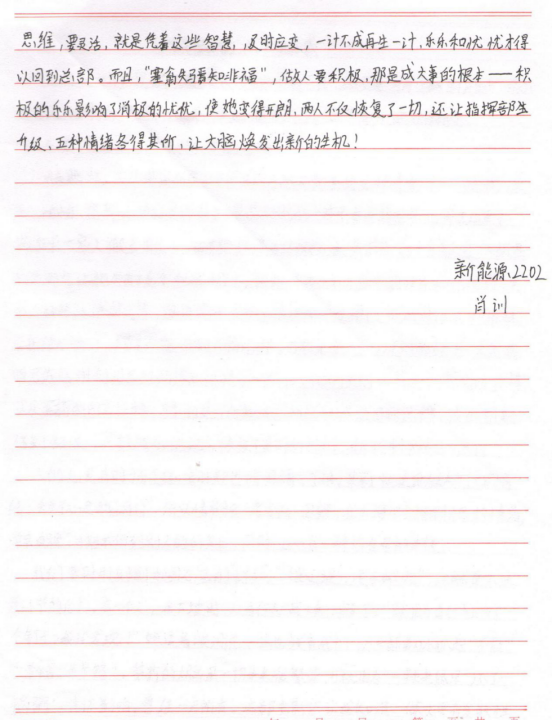 思维，要灵活，就是凭着这些智慧，及时应变，一计不成再生一计，乐乐和忧忧才得
以回到总部。而且，“塞翁失马焉知非福”，做人要积极，那是成大事的根本——积
极的乐乐影响了消极的忧忧，使她变得开朗，两人不仅恢复了一切，还让指挥部
升级、五种情绪各得其所，让大脑焕发出新的生机！
新能源2202
肖训